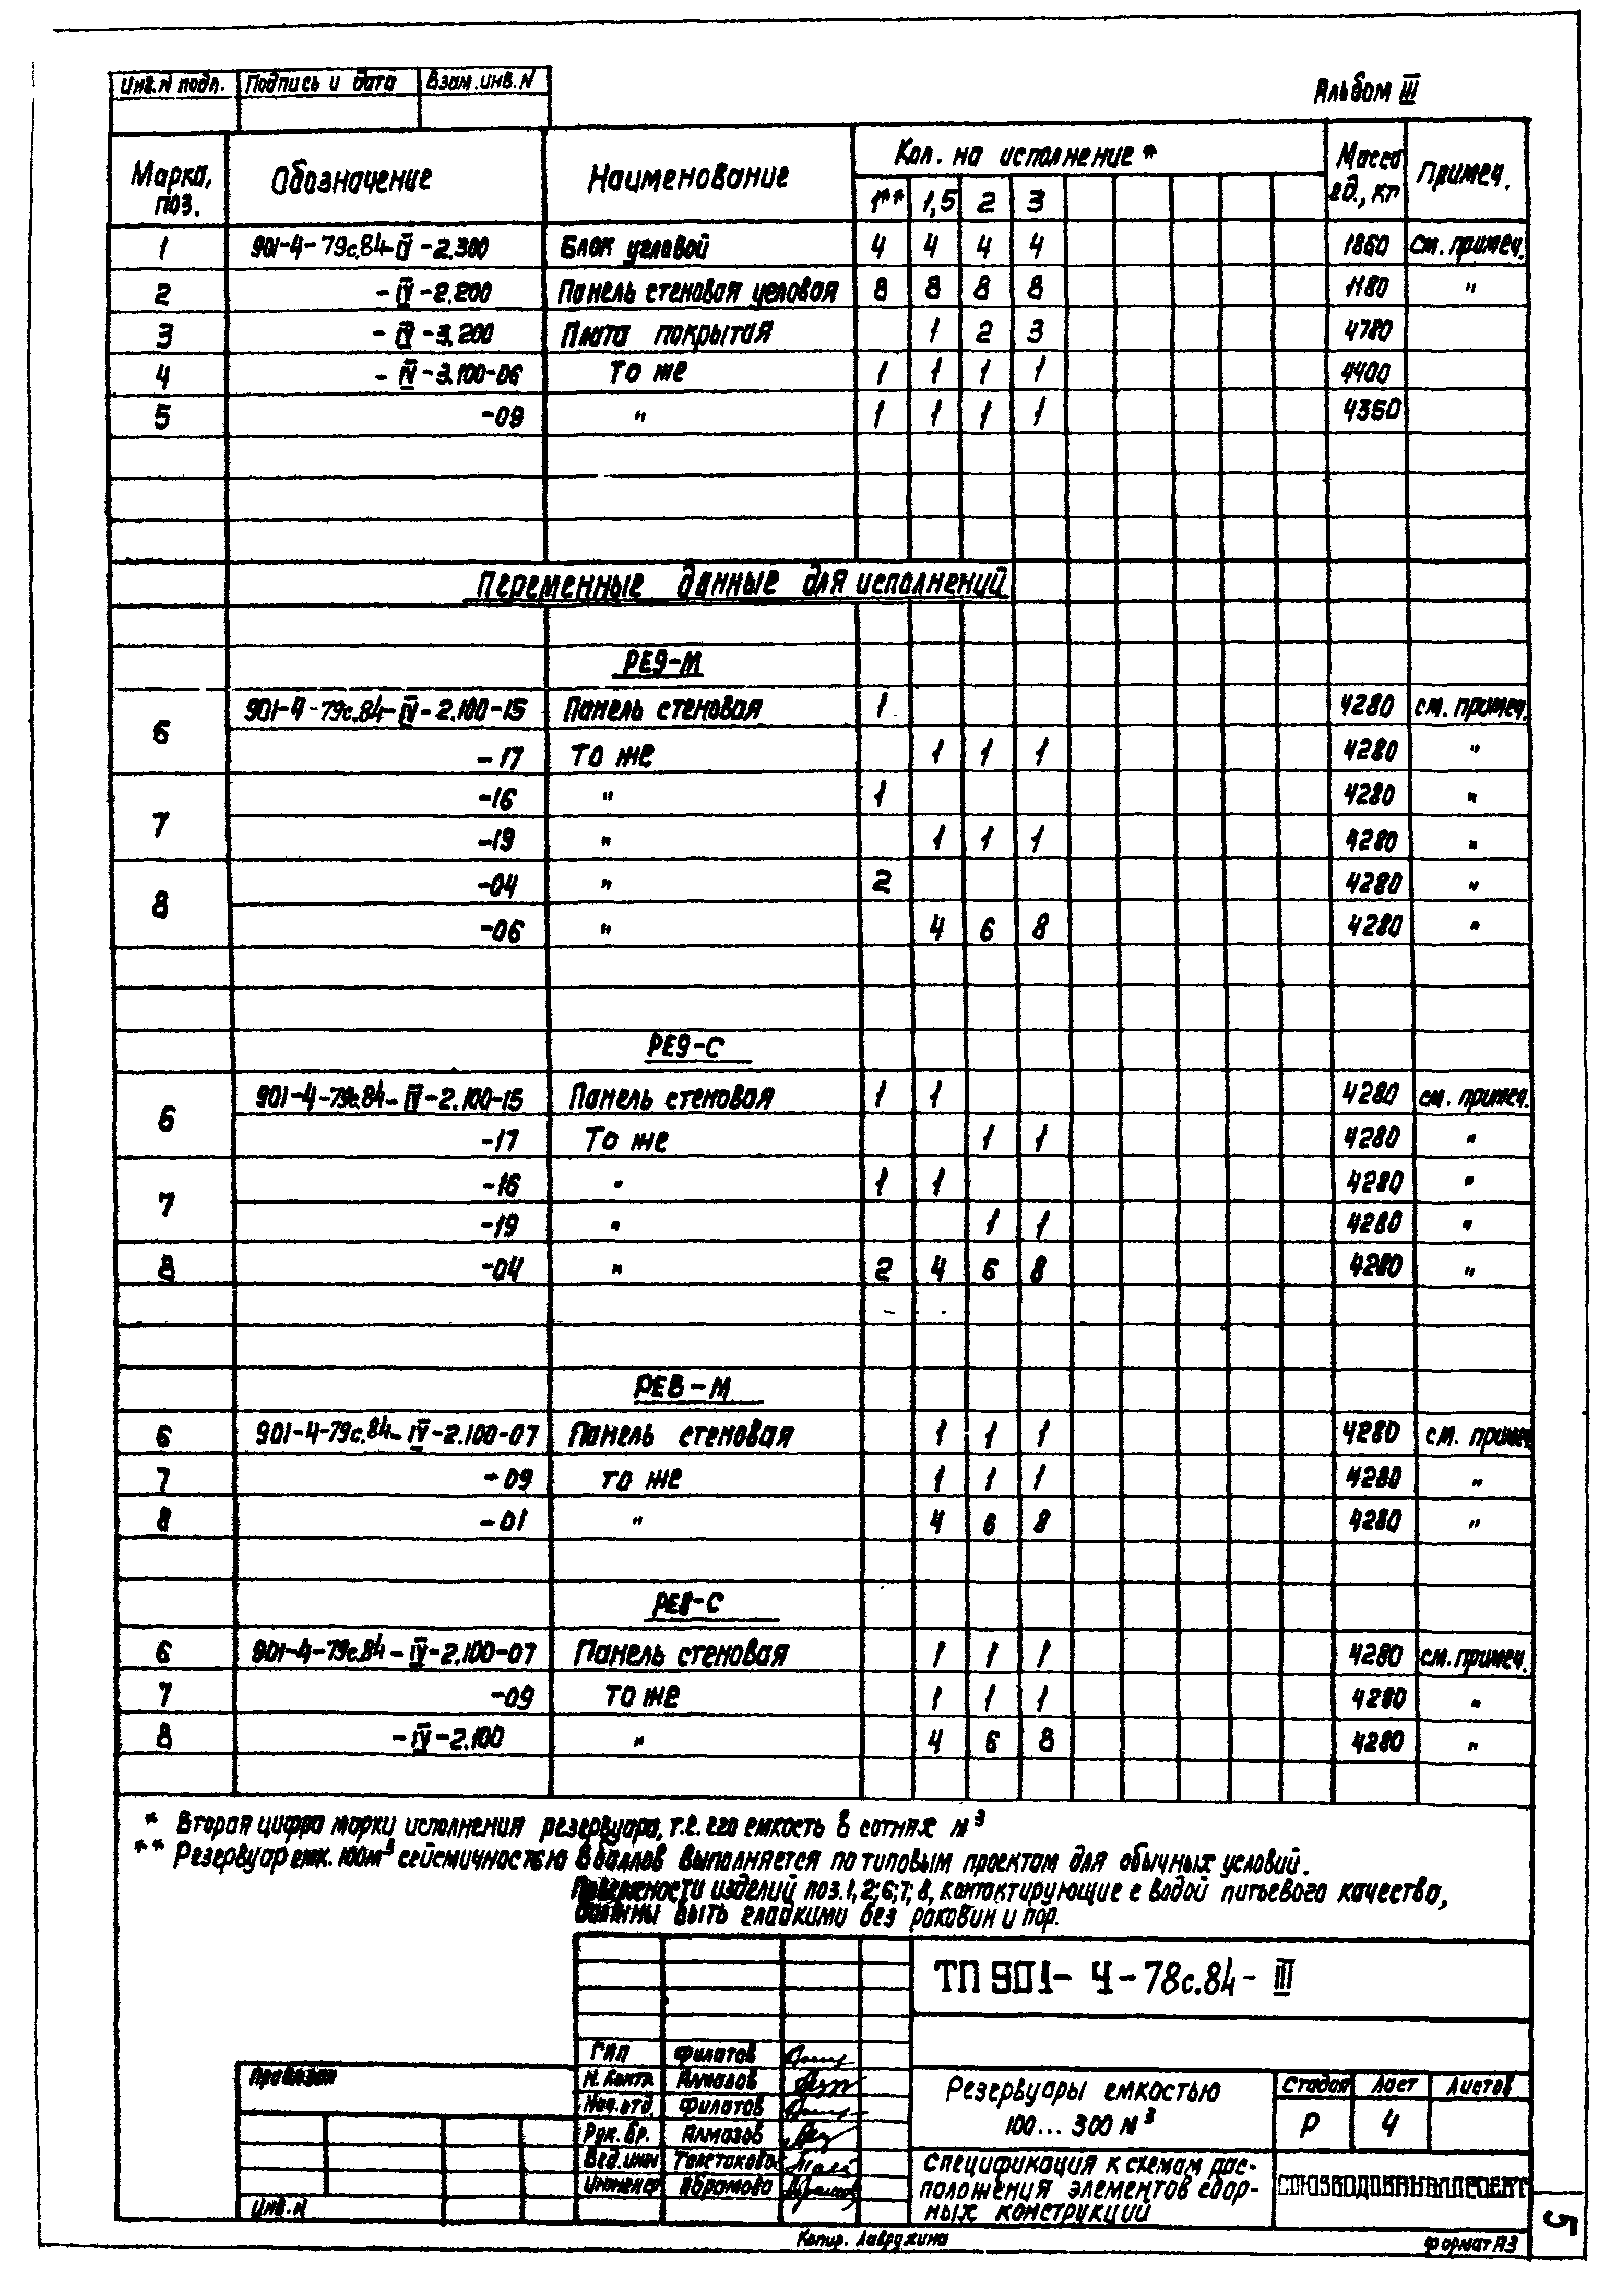 Инв.N подл. Подпись и дата Взам.инв.N
Альбом III
Марка, поз. Обозначение Наименование Кол. на исполнение * Масса ед., кг Примеч.
1** 1,5 2 3
1 901-4-79с.84-IV-2.300 Блок угловой 4 4 4 4 1860 см. примеч.
2 -IV-2.200 Панель стеновая угловая 8 8 8 8 1180 "
3 -IV-3.200 Плита покрытия 1 2 3 4780
4 -IV-3.100-06 То же 1 1 1 1 4400
5 -08 " 1 1 1 1 4360
Переменные данные для исполнений
РЕ9-М
6 901-4-79с.84-IV-2.100-15 Панель стеновая 1 4280 см. примеч.
-17 То же 1 1 1 4280 "
7 -16 " 1 4280 "
-19 " 1 1 1 4280 "
8 -04 " 2 4280 "
-06 " 4 6 8 4280 "
РЕ9-С
6 901-4-79с.84-IV-2.100-15 Панель стеновая 1 1 4280 см. примеч.
-17 То же 1 1 4280 "
7 -16 " 1 1 4280 "
-19 " 1 1 4280 "
8 -04 " 2 4 6 8 4280 "
РЕ8-М
6 901-4-79с.84-IV-2.100-07 Панель стеновая 1 1 1 4280 см. примеч
7 -09 То же 1 1 1 4280 "
8 -01 " 4 6 8 4280 "
РЕ8-С
6 901-4-79с.84-IV-2.100-07 Панель стеновая 1 1 1 4280 см. примеч.
7 -09 То же 1 1 1 4280 "
8 -IV-2.100 " 4 6 8 4280 "
* Вторая цифра марки исполнения резервуара, т.е. его емкость в сотнях м³
** Резервуар емк. 100м³ сейсмичностью 8 баллов выполняется по типовым проектам для обычных условий.
Поверхности изделий поз. 1, 2; 6; 7; 8, контактирующие с водой питьевого качества,
должны быть гладкими без раковин и пор.
ТП 901-4-78с.84-III
Гип Филатов
Н. контр. Алмазов
Нач. отд. Филатов
Рук. бр. Алмазов
Вед. инж Толстакова
Инженер Абрамова
Привязан
Инв. N
Резервуары емкостью
100...300 м³
Стадия Лист Листов
Р 4
Спецификация к схемам рас-
положения элементов сбор-
ных конструкций
СОЮЗВОДОКАНАЛПРОЕКТ
5
Копир. Лаврухина
Формат А3